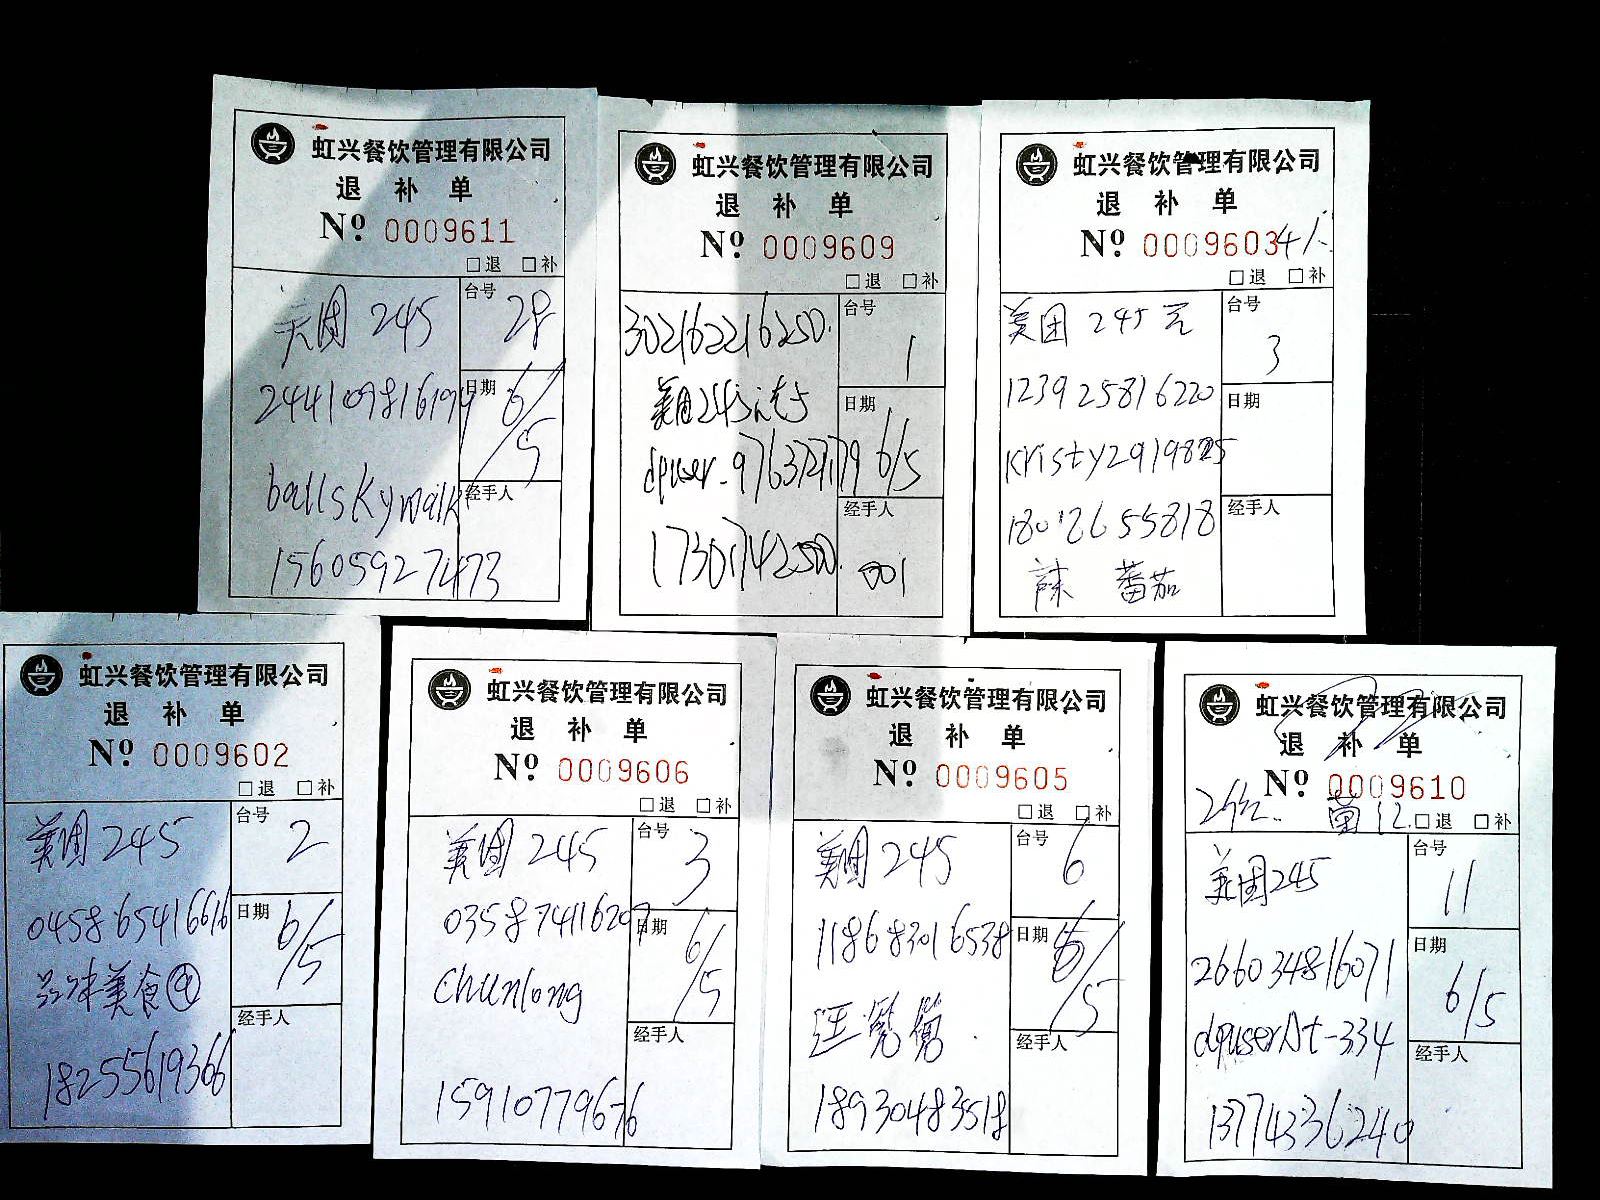 虹兴餐饮管理有限公司
退 补 单
Nº 0009611
□退 □补
美团 245
台号
28
日期
6/5
ballskywalk
经手人
15605927473
虹兴餐饮管理有限公司
退 补 单
Nº 0009609
□退 □补
302162216250
台号
1
美团245元
日期
6/5
经手人
001
虹兴餐饮管理有限公司
退 补 单
Nº 0009603
□退 □补
美团 245元
台号
3
123925816220
日期
18012655818
经手人
辣 蕃茄
虹兴餐饮管理有限公司
退 补 单
Nº 0009602
□退 □补
美团 245
台号
2
045865416616
日期
6/5
品味美食
经手人
18255619366
虹兴餐饮管理有限公司
退 补 单
Nº 0009606
□退 □补
美团 245
台号
3
035874116207
日期
6/5
Chunlong
经手人
15910779676
虹兴餐饮管理有限公司
退 补 单
Nº 0009605
□退 □补
美团 245
台号
6
118683016538
日期
6/5
经手人
18930483518
虹兴餐饮管理有限公司
退 补 单
Nº 0009610
□退 □补
美团245
台号
11
266034816071
日期
6/5
经手人
13774336240